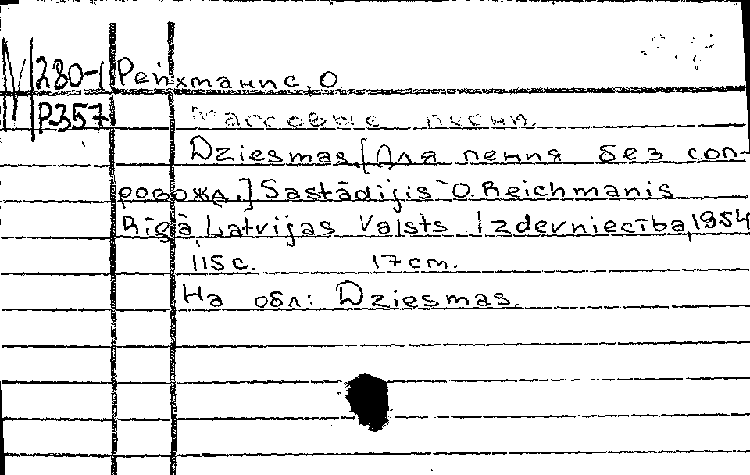 280-1 Рейхманис, О
Р357 Массовые песни
Dziesmas. [Для пения без соп-
ровожд.] Sastādījis O. Reichmanis
Rīgā, Latvijas Valsts Izdevniecība, 1954
115 с. 17 cm.
На обл: Dziesmas.